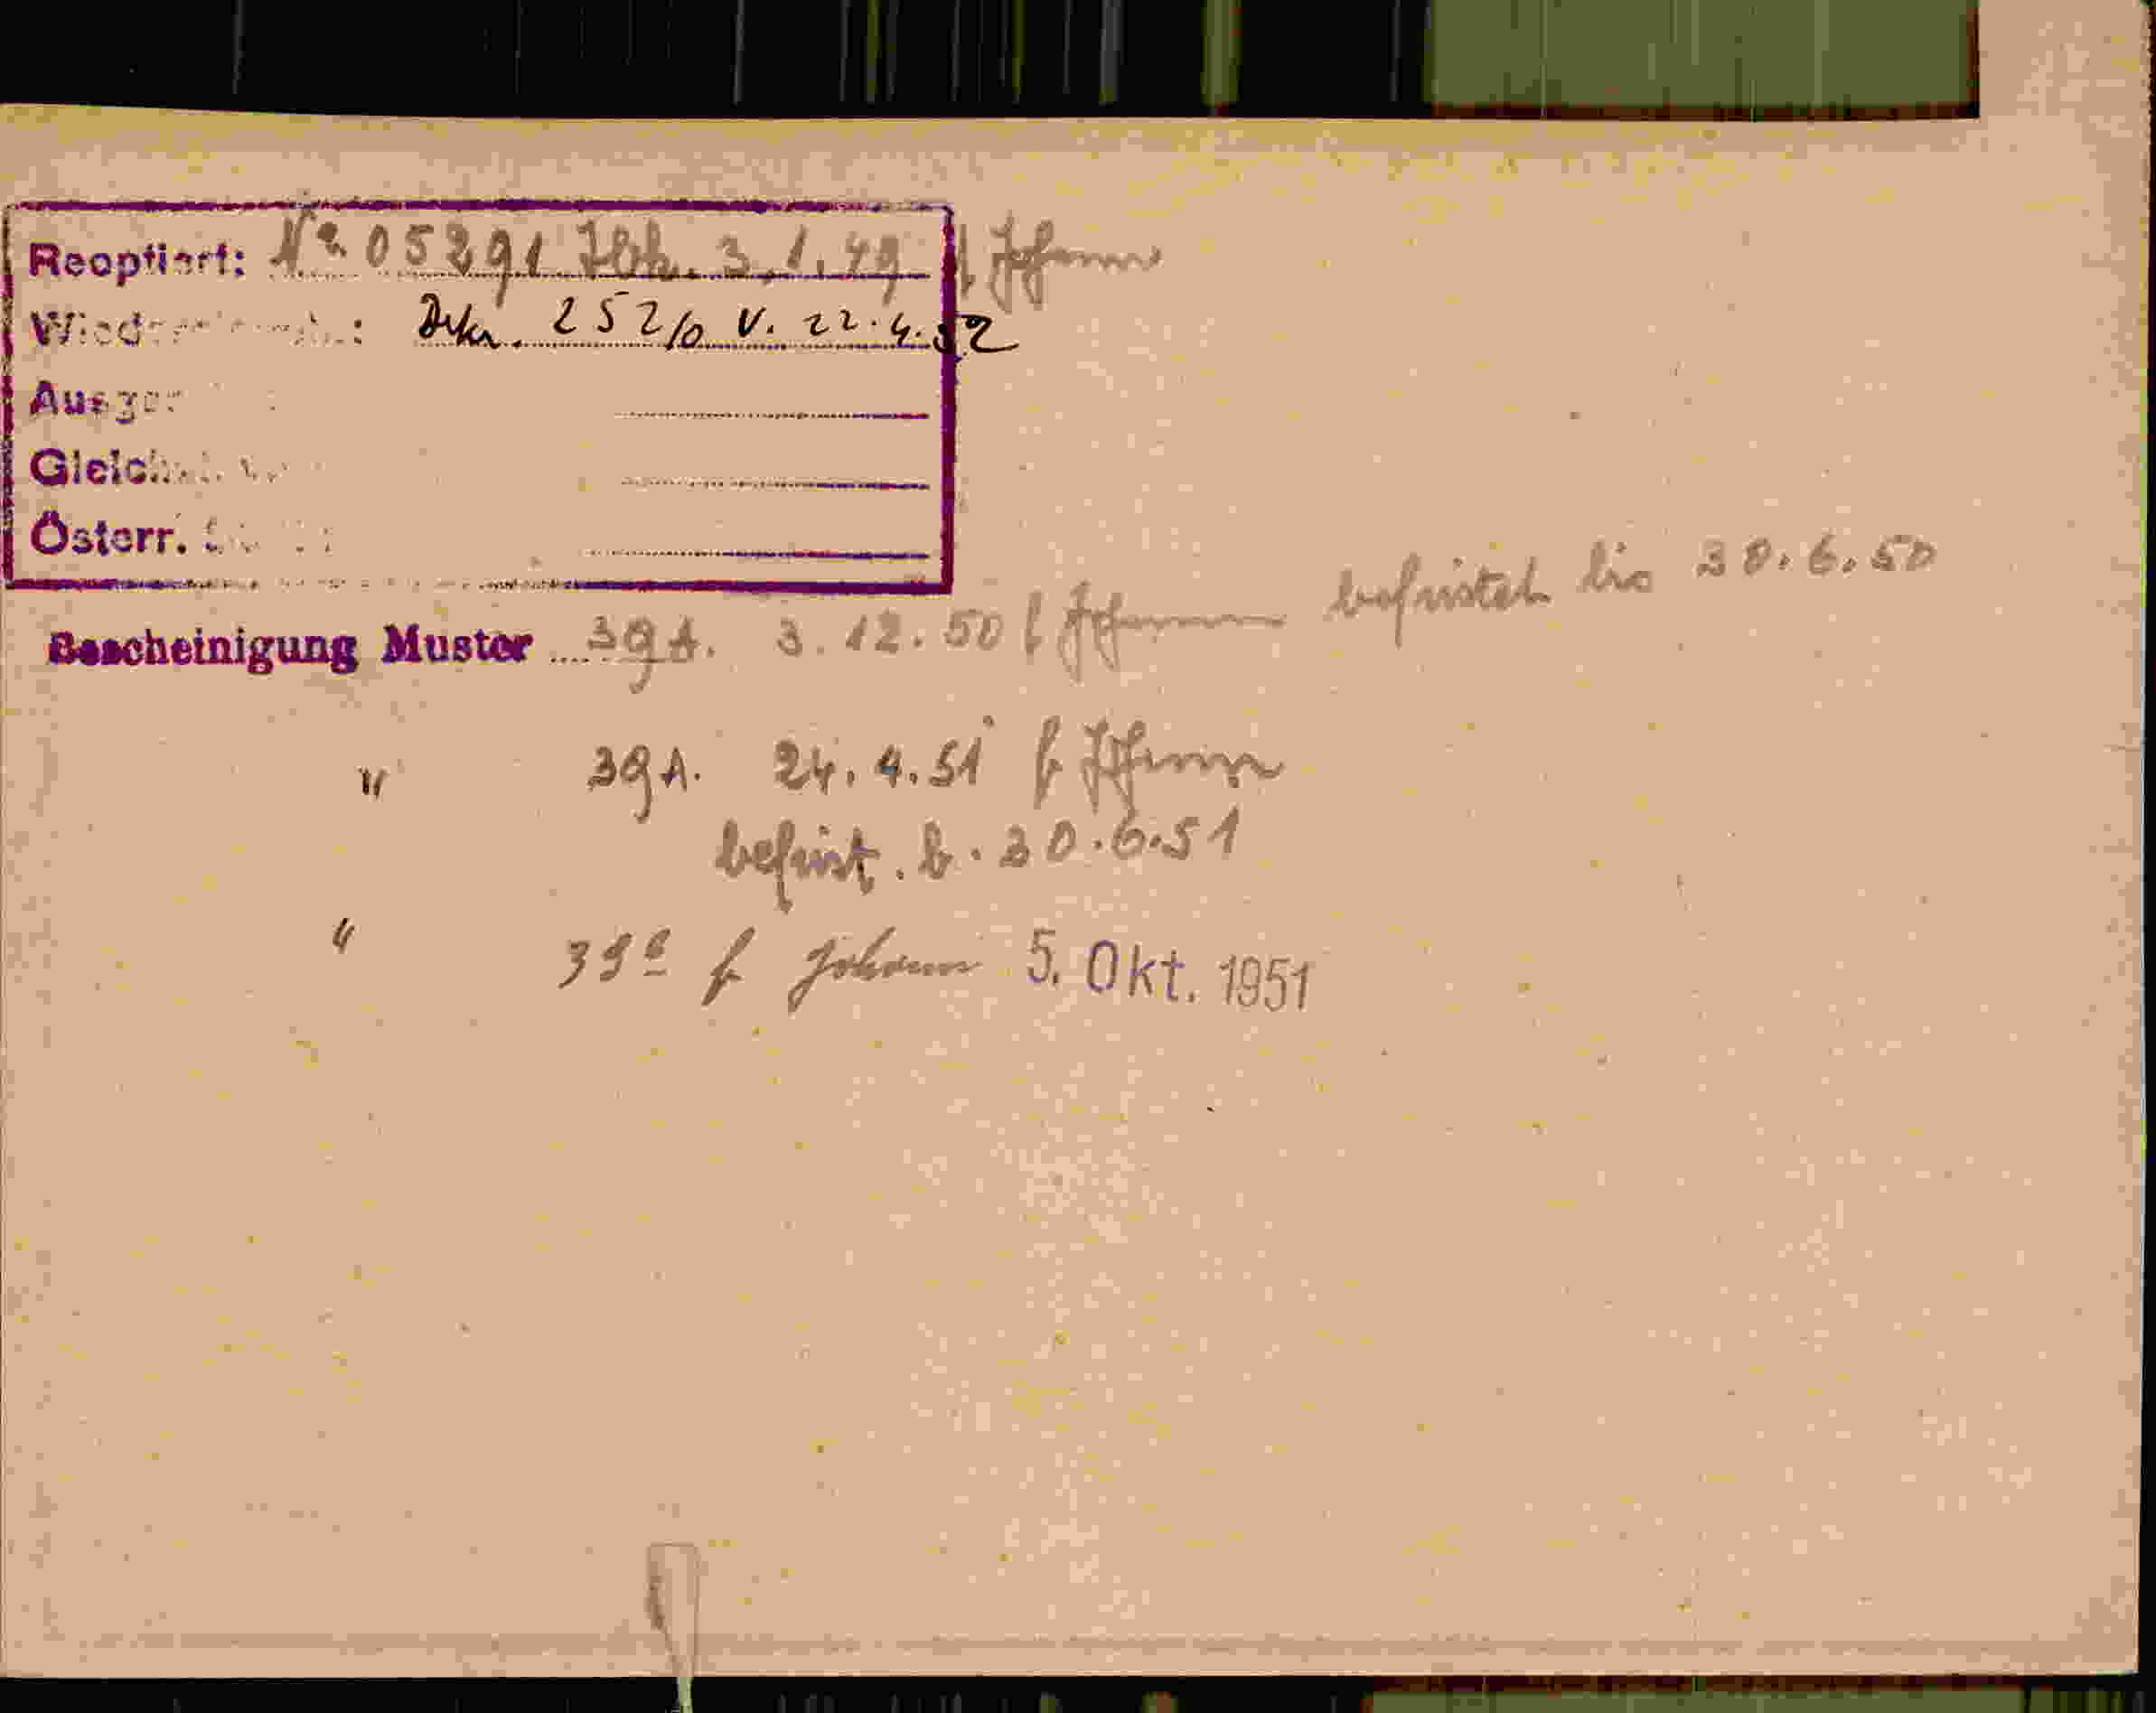 Reoptiert: No 05291 Ibk. 3.1.49 f Johann
Dekr. 252/0 v. 22.4.52
Österr.
Bescheinigung Muster 39A. 3.12.50 f Johann befristet bis 30.6.50
" 39A. 24.4.51 f Johann
befrist. b. 30.6.51
" 39a f Johann 5. Okt. 1951